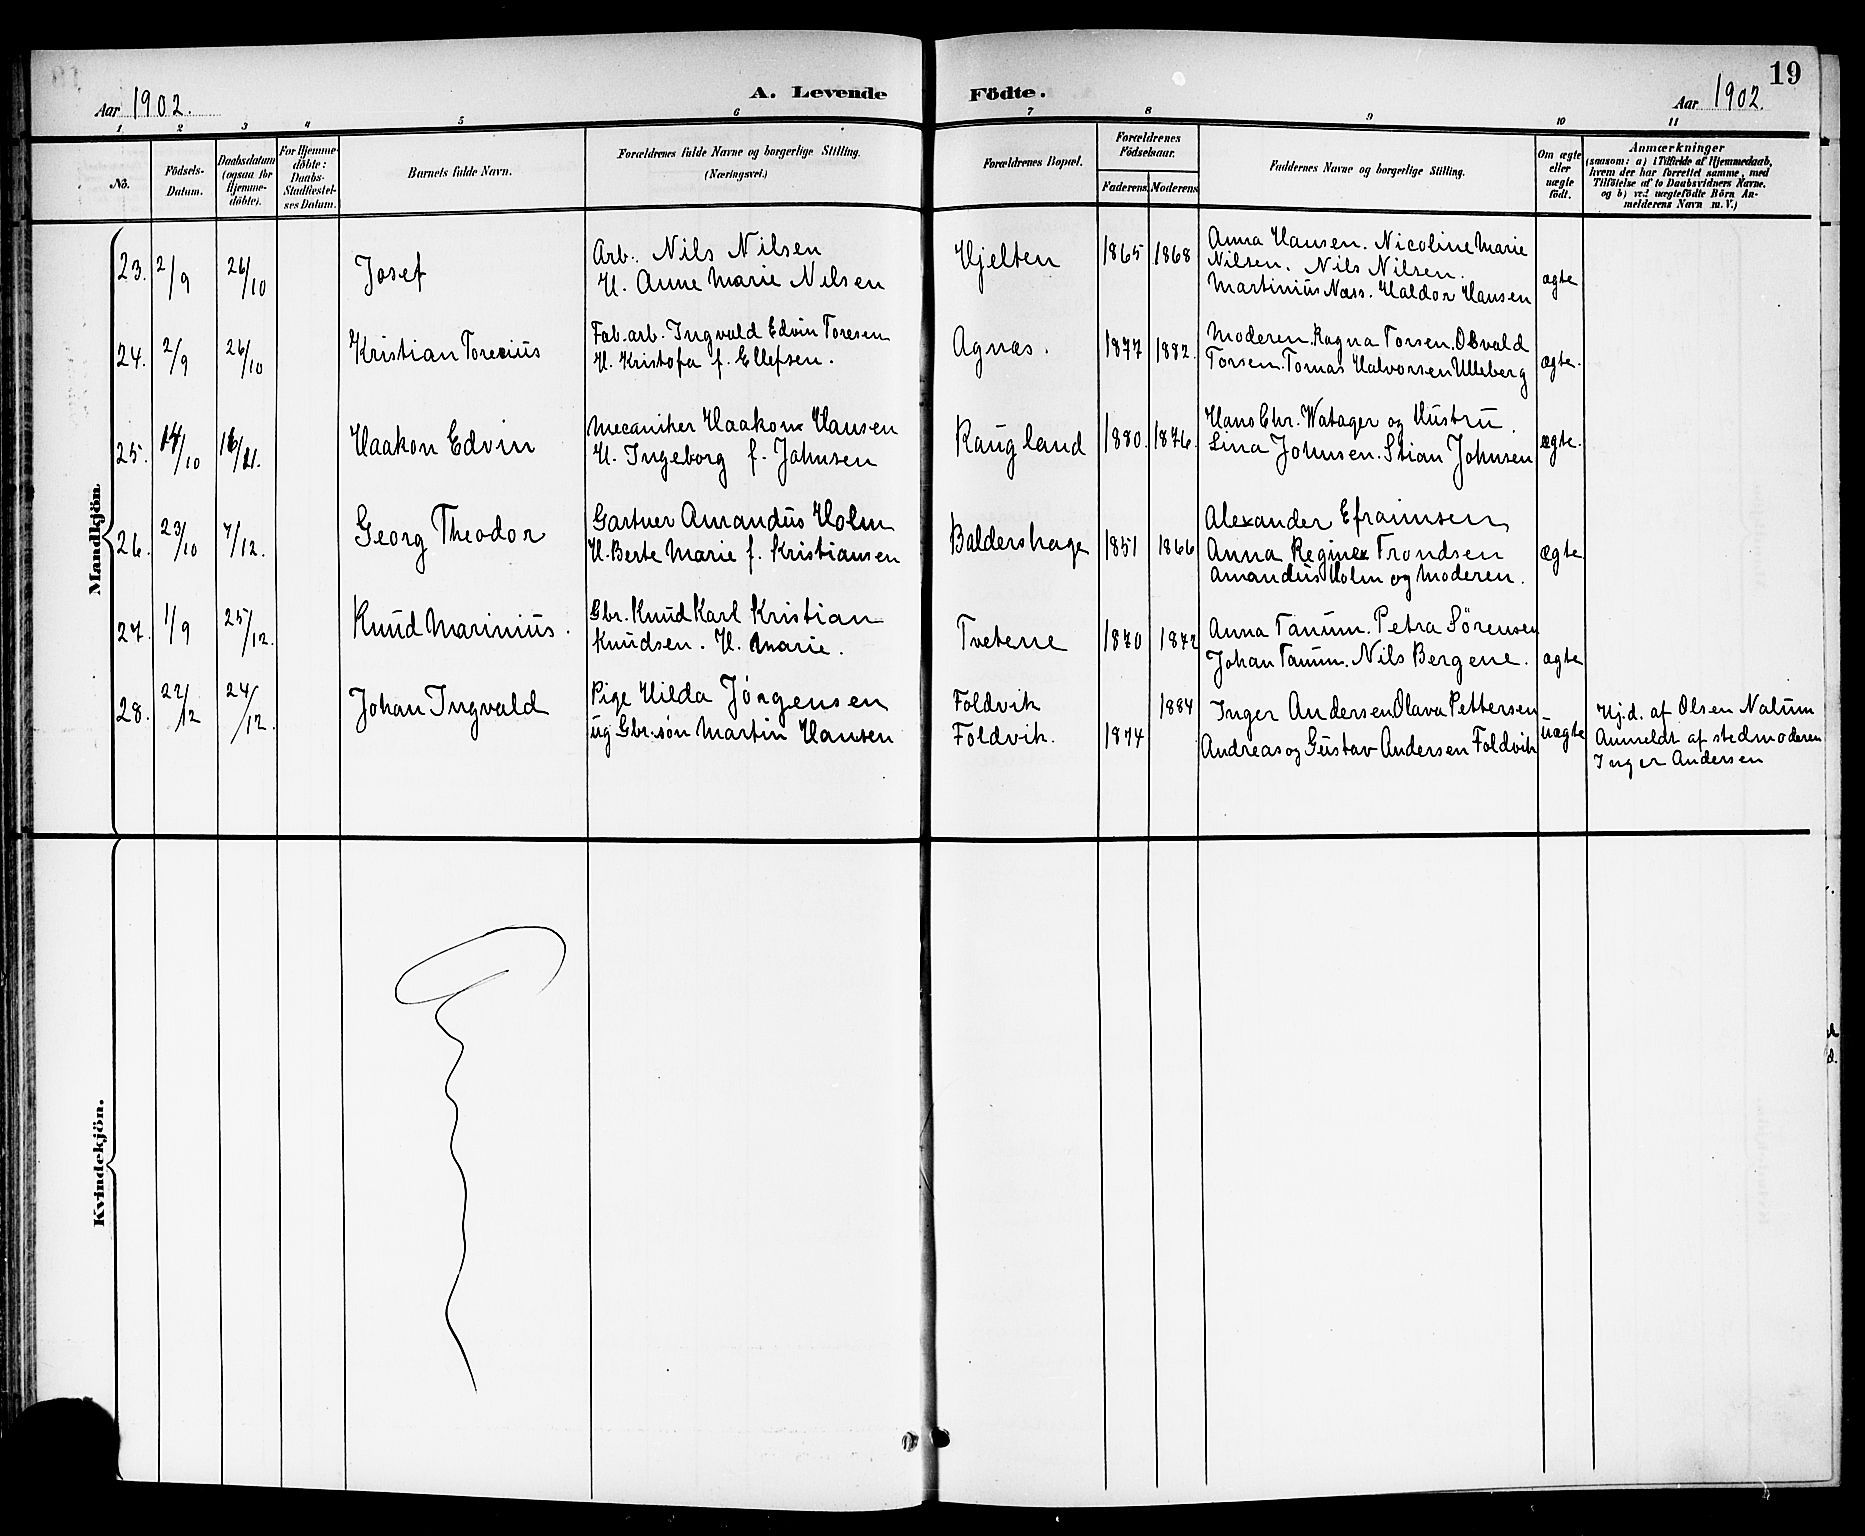 19
Aar 1902.
A. Levende Födte.
Aar 1902.
1 2 3 4 5 6 7 8 9 10 11
No.
Födsels-Datum.
Daabsdatum (ogsaa for Hjemme-döbte).
For Hjemme-döbte: Daabs-Stadfæstel-ses Datum.
Barnets fulde Navn.
Forældrenes fulde Navne og borgerlige Stilling.
(Næringsvei.)
Forældrenes Bopæl.
Forældrenes Födselsaar.
Faderens Moderens
Faddernes Navne og borgerlige Stilling.
Om ægte eller uægte födt.
Anmærkninger
(saasom: a) i Tilfælde af Hjemmedaab,
hvem der har forrettet samme, med
Tilföielse af to Daabsvidners Navne.
og b) ved uægtefödte Börn An-
melderens Navn m. V.)
Mandkjön.
23. 2/9 26/10 Josef
Arb. Nils Nilsen
H. Anne Marie Nilsen
Hjelten 1865 1868
Anna Hansen. Nicoline Marie
Nilsen. Nils Nilsen.
Martinius Næss. Haldor Hansen
ægte
24. 2/9 26/10 Kristian Torecius
Fab.arb. Ingvald Edvin Toresen
H. Kristofa f. Ellefsen.
Agnæs. 1877 1882.
Moderen. Ragna Torsen. Osvald
Torsen. Tomas Halvorsen Ulleberg
ægte.
25. 14/10 16/11. Haakon Edvin
Mecaniker Haakon Hansen
H. Ingeborg f. Johnsen
Raugland 1880. 1876.
Hans Chr. Watager og Hustru.
Lina Johnsen. Stian Johnsen
ægte.
26. 23/10 7/12. Georg Theodor
Gartner Amandus Holm
H. Berte Marie f. Kristiansen
Baldershage 1851 1866
Alexander Efraimsen
Anna Regine Trondsen
Amandus Holm og Moderen.
ægte
27. 1/9 25/12. Knud Marinius.
Gbr. Knud Karl Kristian
Knudsen. H. Marie.
Tvetene 1870 1872
Anna Tanum. Petra Sörensen
Johan Tanum. Nils Bergene.
ægte
28. 22/12 24/12. Johan Ingvald
Pige Hilda Jörgensen
ug Gbr.søn Martin Hansen
Foldvik 1884
Foldvik. 1874
Inger Andersen Olava Pettersen
Andreas og Gustav Andersen Foldvik
uægte
Hj.d. af Olsen Nalum
Anmeldt af stedmoderen
Inger Andersen
Kvindekjön.